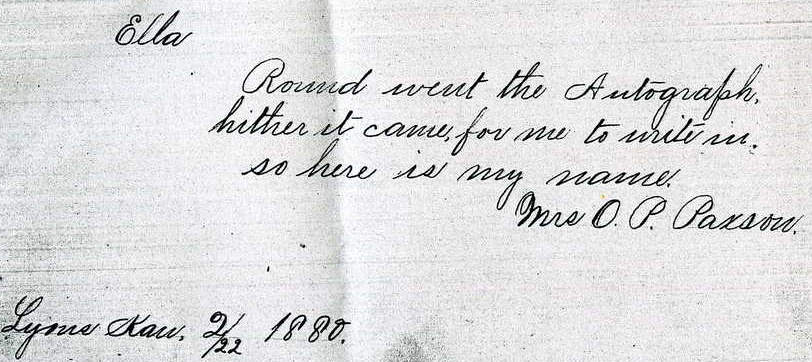 Ella
Round went the Autograph,
hither it came, for me to write in.
so here is my name.
Mrs O. P. Paxson.
Lyons Kan. 2/22 1880.